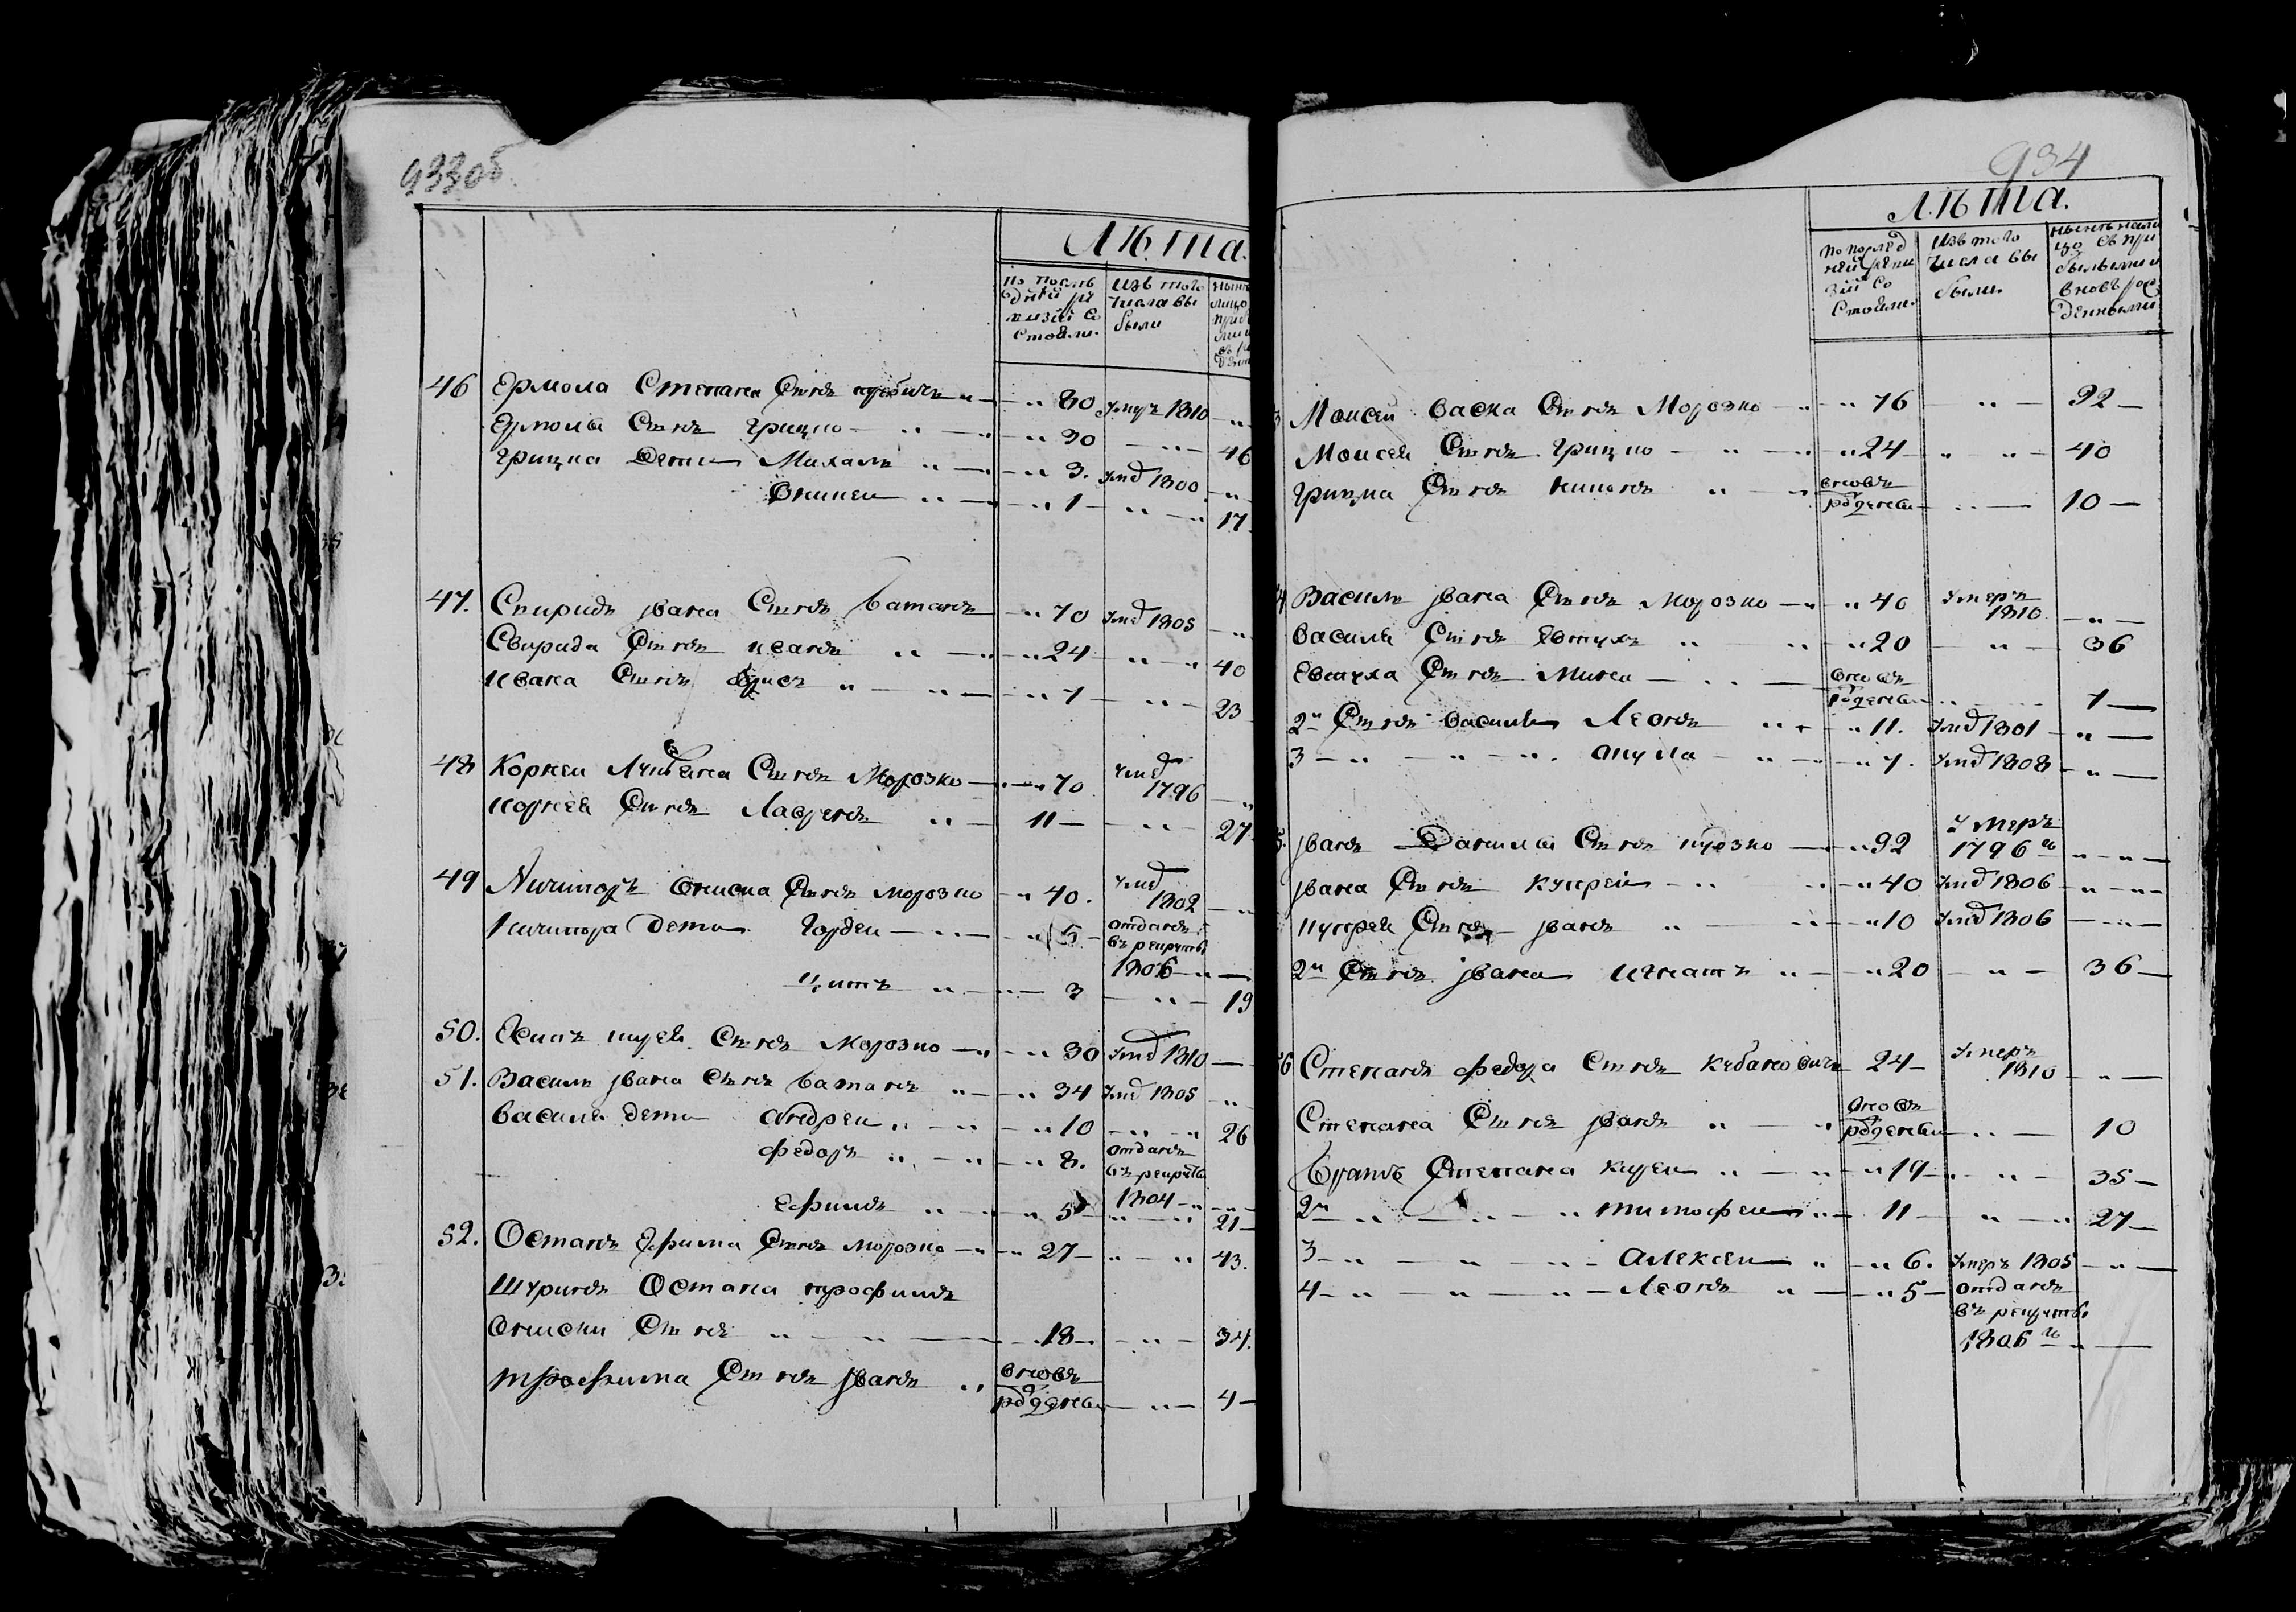 933об
Лѣта.
по послѣ
дней ре
визіи со
стояли.
изъ того
числа вы
были
46 Ермола Степана Сынъ 80 умеръ 1810
Ермолы Сынъ Грицко 30 46
Грицка Дети Михаилъ 3. умер 1800
Онишко 1 17
47. Спиридъ Ивана Сынъ Батанъ 70 умер 1805
Свирида Сынъ Иванъ 24 40
Ивана Сынъ 7 23
48 Корней Сынъ Морозко 70 умер 1796
Корнея Сынъ Лавренъ 11 27
49 Ничипоръ Ониска Сынъ Морозко 40. умер 1802
Ничипора Дети Гордей 5 отданъ въ рекруты 1806
Титъ 3 19
50. Есипъ Сынъ Морозко 30 умер 1810
51. Василь Ивана Сынъ Батанъ 34 умер 1805
Василя дети Андрей 10 26
Федоръ 8. отданъ въ рекруты 1804
Ефимъ 5 21
52. Остапъ Ефима Сынъ Морозко 27 43.
Шуринъ Остапа Трофимъ
Ониски Сынъ 18 34.
Трофима Сынъ Иванъ вновь рожденъ 4
934
Лѣта.
по послѣд
ней реви
зіи со
стояли.
изъ того
числа вы
были.
нынѣ нали
цо съ при
былыми и
вновь рож
денными
Моисей Васка Сынъ Морозко 76 92
Моисея Сынъ Грицко 24 40
Грицка Сынъ вновь рожденъ 10
Василь Ивана Сынъ Морозко 40 умеръ 1810
Василя Сынъ Евтухъ 20 36
Евтуха Сынъ Мина вновь рожденъ 7
2й Сынъ Василя Леонъ 11. умер 1801
3 7. умер 1808
Иванъ Данилы Сынъ 92 умеръ 1796го
Ивана Сынъ Купрей 40 умер 1806
Купрея Сынъ Иванъ 10 умер 1806
2й Сынъ Ивана Игнатъ 20 36
Степанъ Федора Сынъ Кубановичъ 24 умеръ 1810
Степана Сынъ Иванъ вновь рожденъ 10
Братъ Степана 19 35
2й Тимофей 11 27
3 Алексей 6. умеръ 1805
4 Леонъ 5 отданъ въ рекруты 1806го